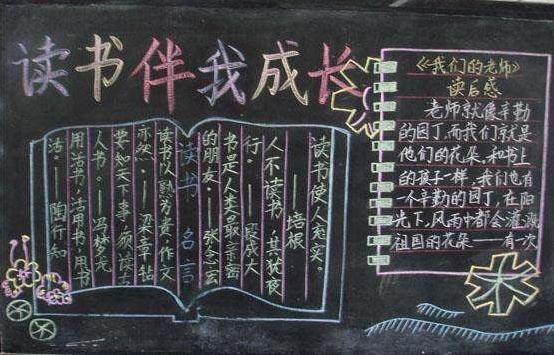 读书伴我成长
读书使人充实。
——培根
人不读书,其犹夜
行。——成大
书是人类最亲密
的朋友。——张
读书名言
读书以熟为贵,作文
亦然。——梁章钻
要知天下事,须读古
人书。——冯梦龙
用活书,活用书,用书
活。——陶行知
《我们的老师》
读后感
老师就像辛勤
的园丁,而我们就是
他们的花朵,和书上
的孩子一样,我们也有
一个辛勤的园丁,在阳
光下,风雨中都会灌溉
祖国的花朵——有一次